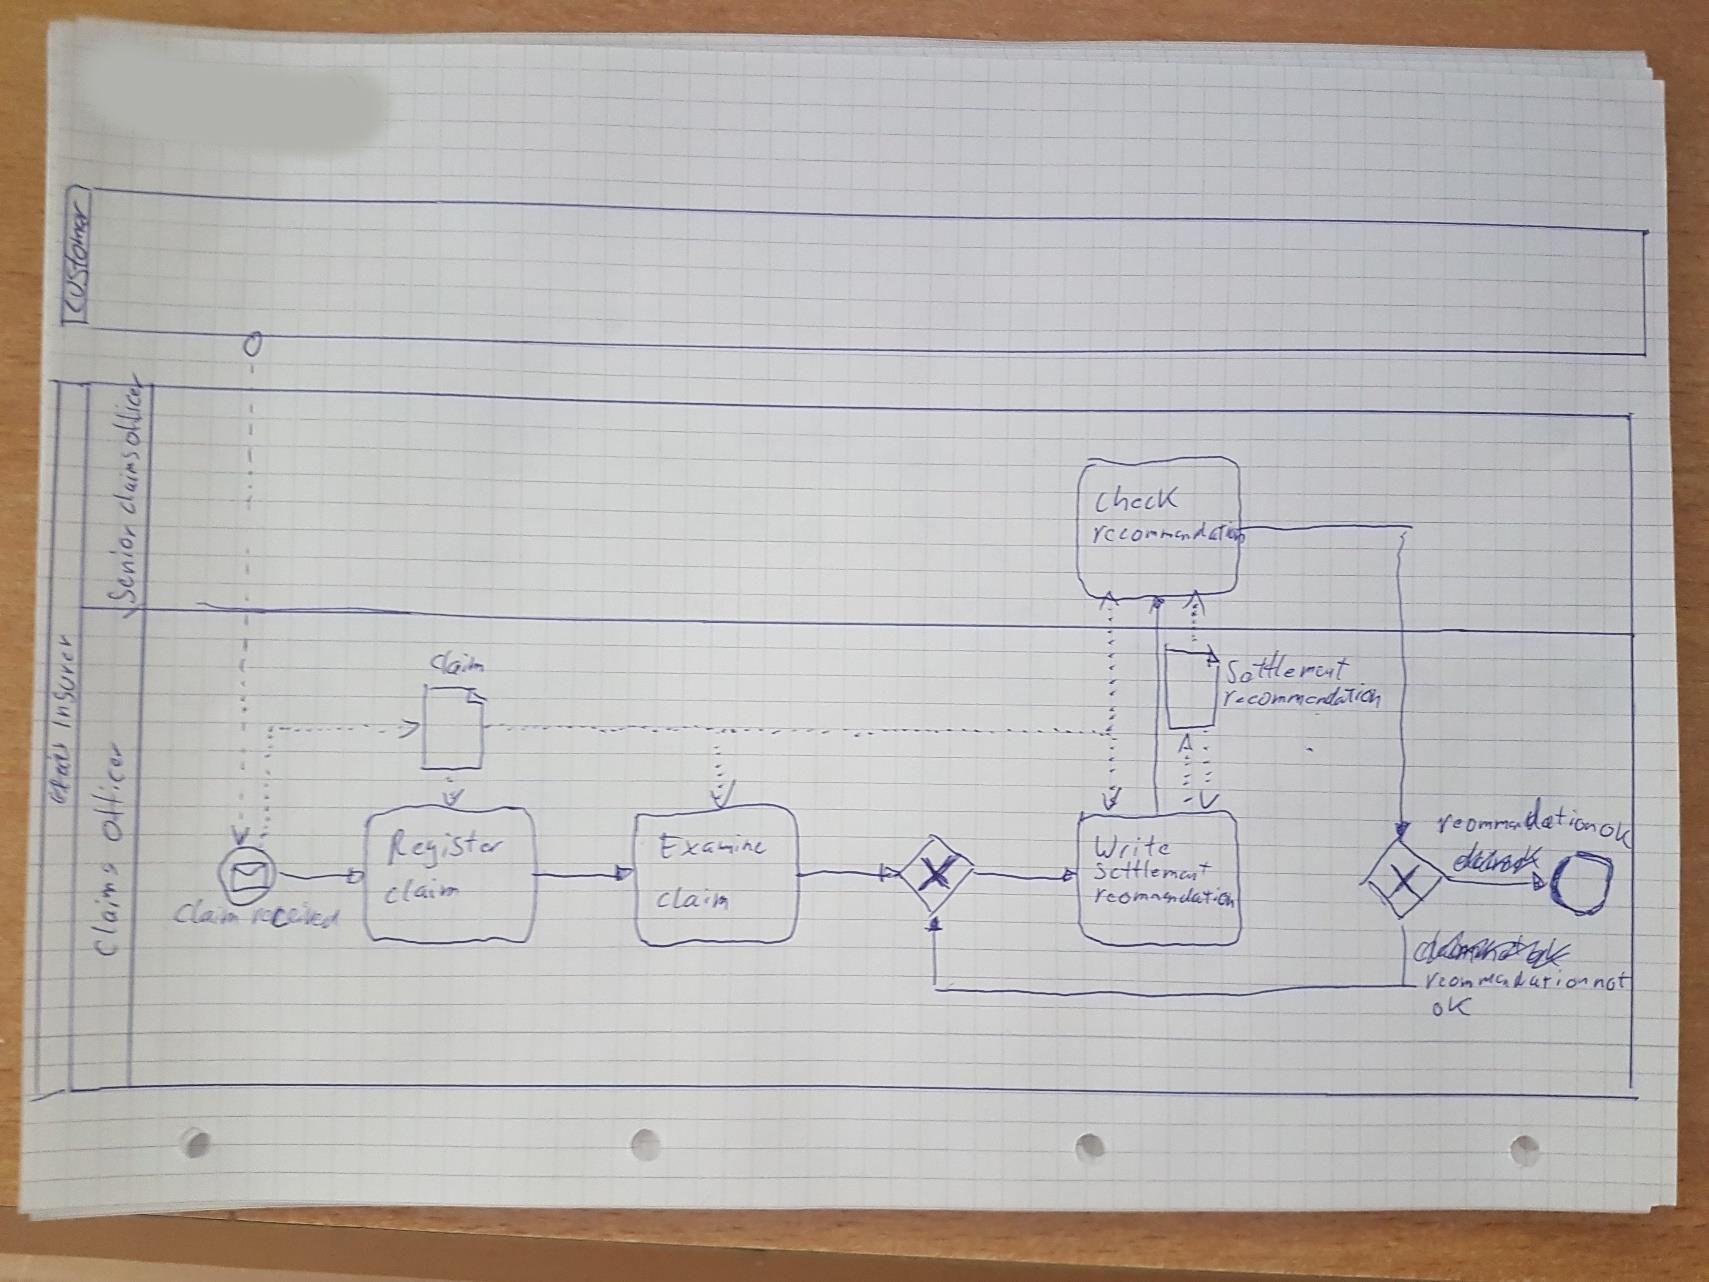 Customer
Insurer
Senior claims officer
Claims Officer
check
recommendation
claim
Settlement
recommendation
Register
claim
Examine
claim
Write
Settlement
recommendation
claim received
recommendation ok
recommendation not
ok